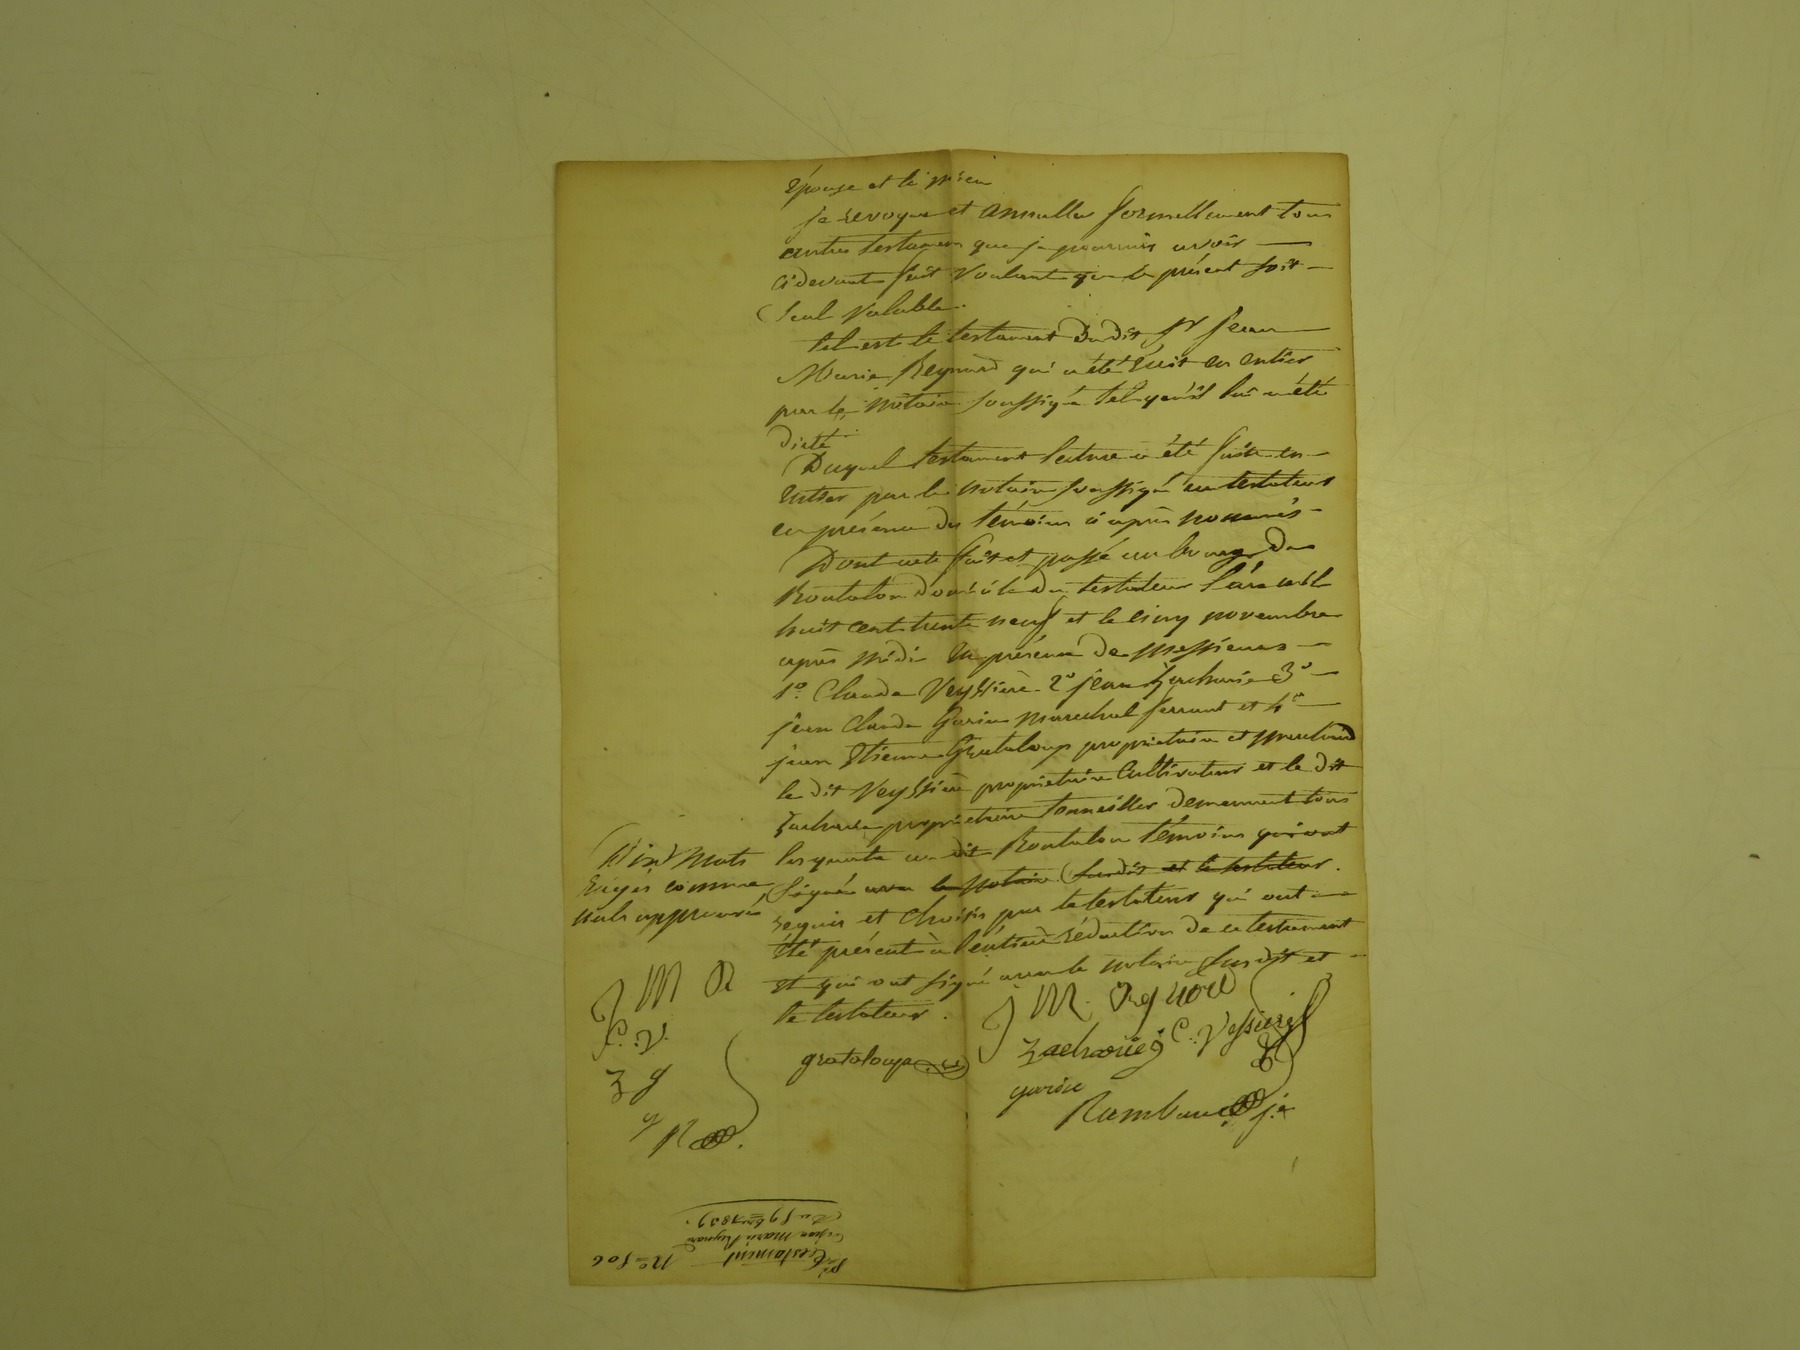 épouse et le mien
je revoque et annulle formellement tous
autres testamens que je pourrais avoir
cidevant fait voulant que le présent soit
seul valable.
tel est le testament dudit Sr jean
Marie Reynard qui a été écrit en entier
par le notaire soussigné tel qu'il lui a été
dicté
Duquel testament lecture a été faite en
entier par le notaire soussigné au testateur
en présence des témoins ci après nommés
Dont acte fait et passé au bourg de
Rontalon domicile du testateur l'an mil
huit cent trente neuf et le cinq novembre
après midi en présence de messieurs
1° Claude Veyssière 2° jean Zacharie 3°
jean Claude Garin marechal ferrant et 4°
jean Etienne Grataloup propriétaire et marchand
le dit Veyssière propriétaire cultivateur et le dit
Zacharie propriétaire tonnellier demeurant tous
les quatre au dit Rontalon témoins qui ont
signé avec le notaire susdit et le testateur.
requis et choisis par le testateur qui ont
été présent à l'entière rédaction de ce testament
et qui ont signé avec le notaire susdit et
le testateur.
mots
rayés comme
nuls approuvés
J M R
C. V.
Z J
g
R
J M. Reynard
Zacharie j C. Vessiere
grataloup
garin
Rambaud je
No 506
Testament
de jean Marie Reynard
Du 5 9bre 1839.